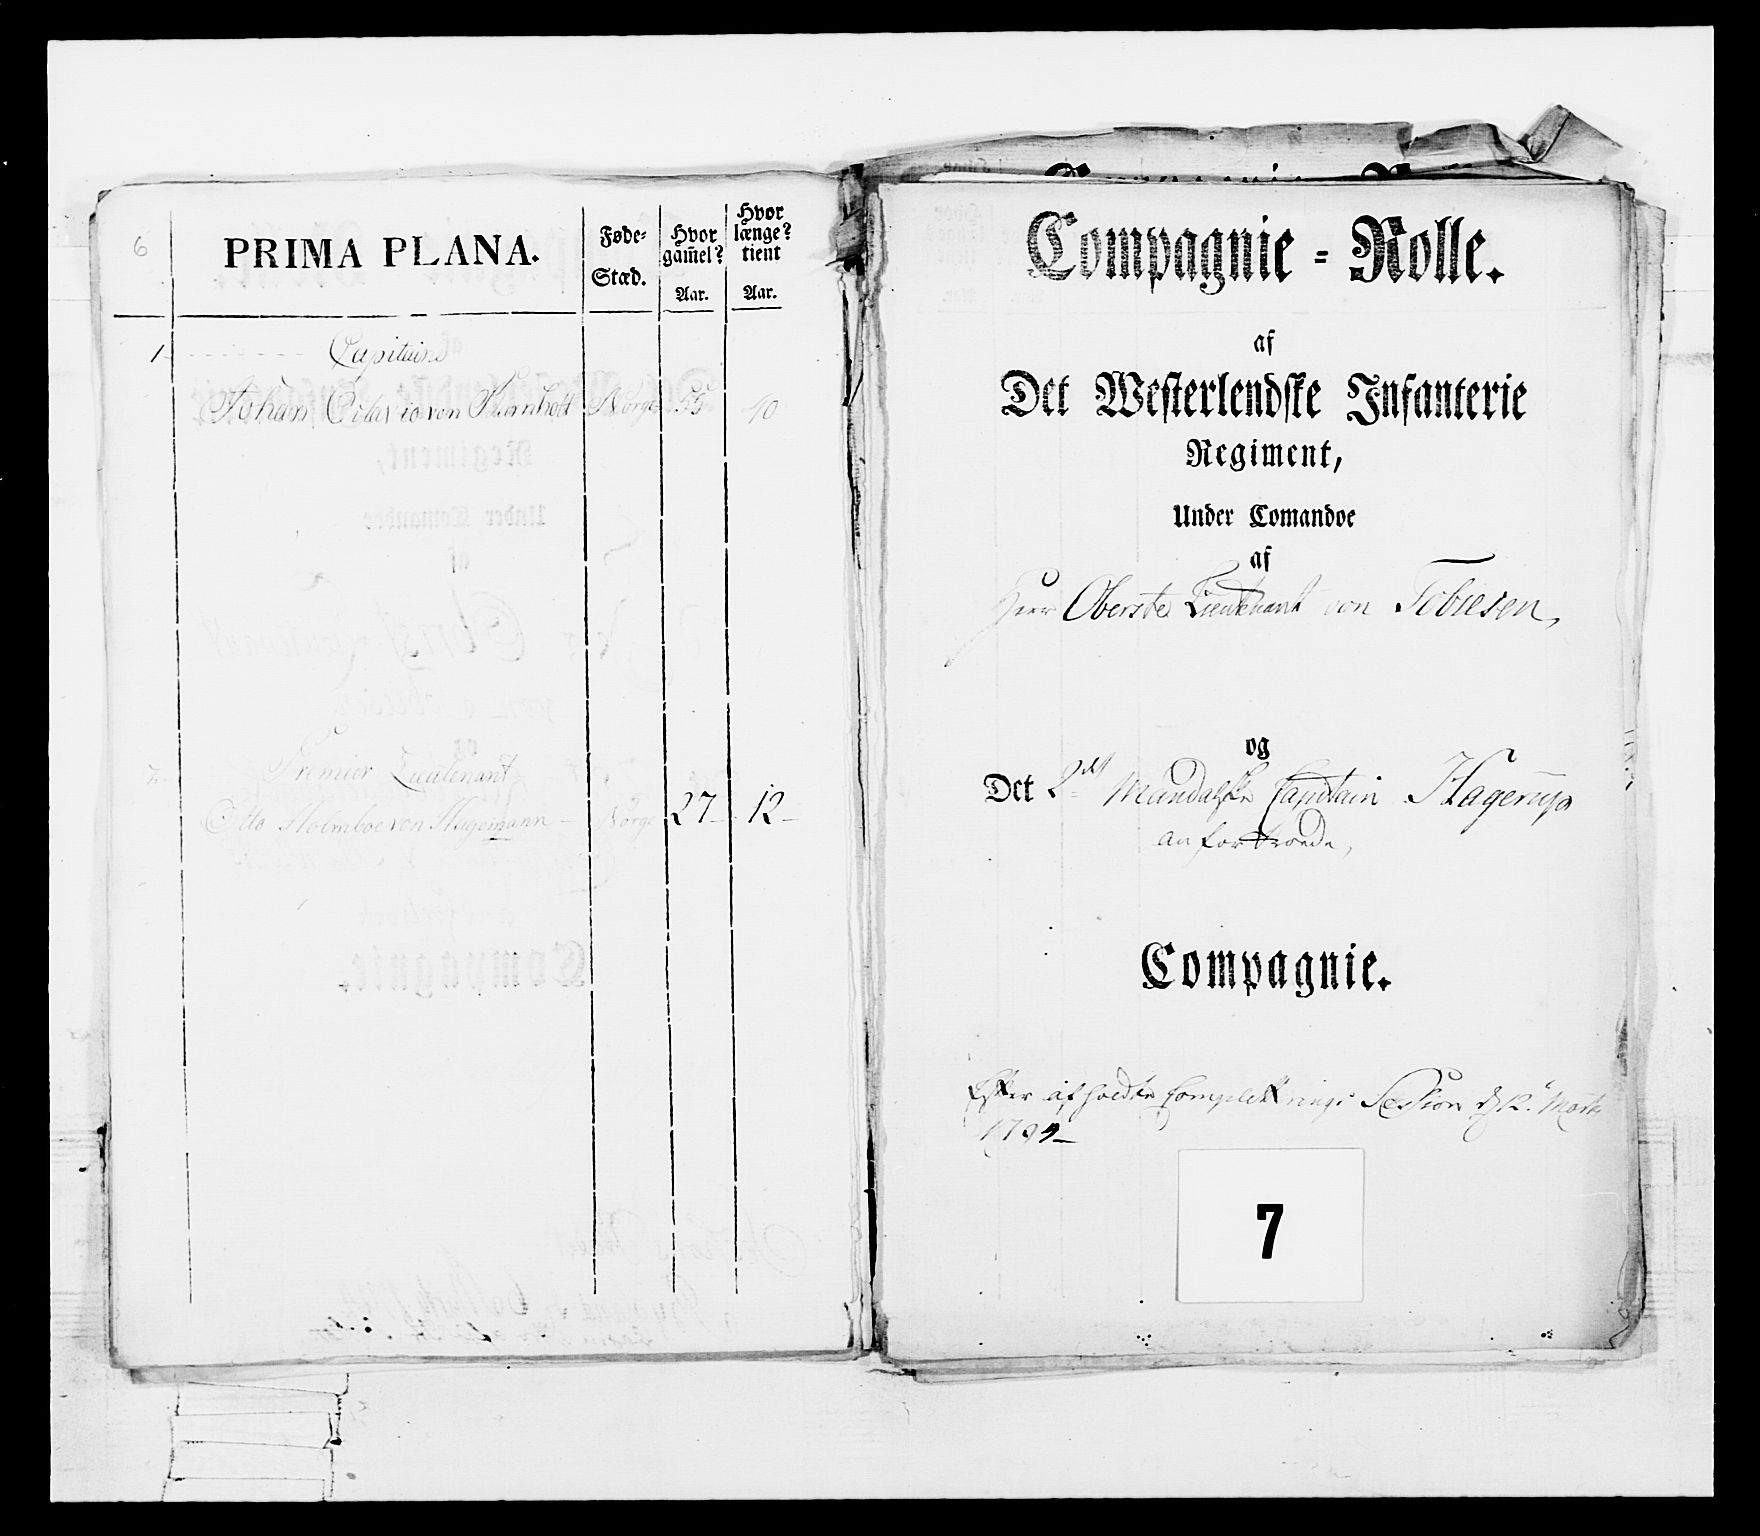 6
PRIMA PLANA.
Føde-
Stæd.
Hvor
gam̄el?
Aar.
Hvor
længe?
tient
Aar.
1
Capitain
Johan Octavio von Norge 55 40
2
Premier Lieutenant
Otto Holmboe von Hagemann Norge 27 12
Compagnie-Rolle.
af
Det Westerlendske Infanterie
Regiment,
Under Comandoe
af
Herr Oberste Lieutenant von Tobiesen,
og
Det 2det Mandalske Capitain Hagerup
anfortroede,
Compagnie.
Efter afholdte Completterings Session d 12 Marti
1799
7